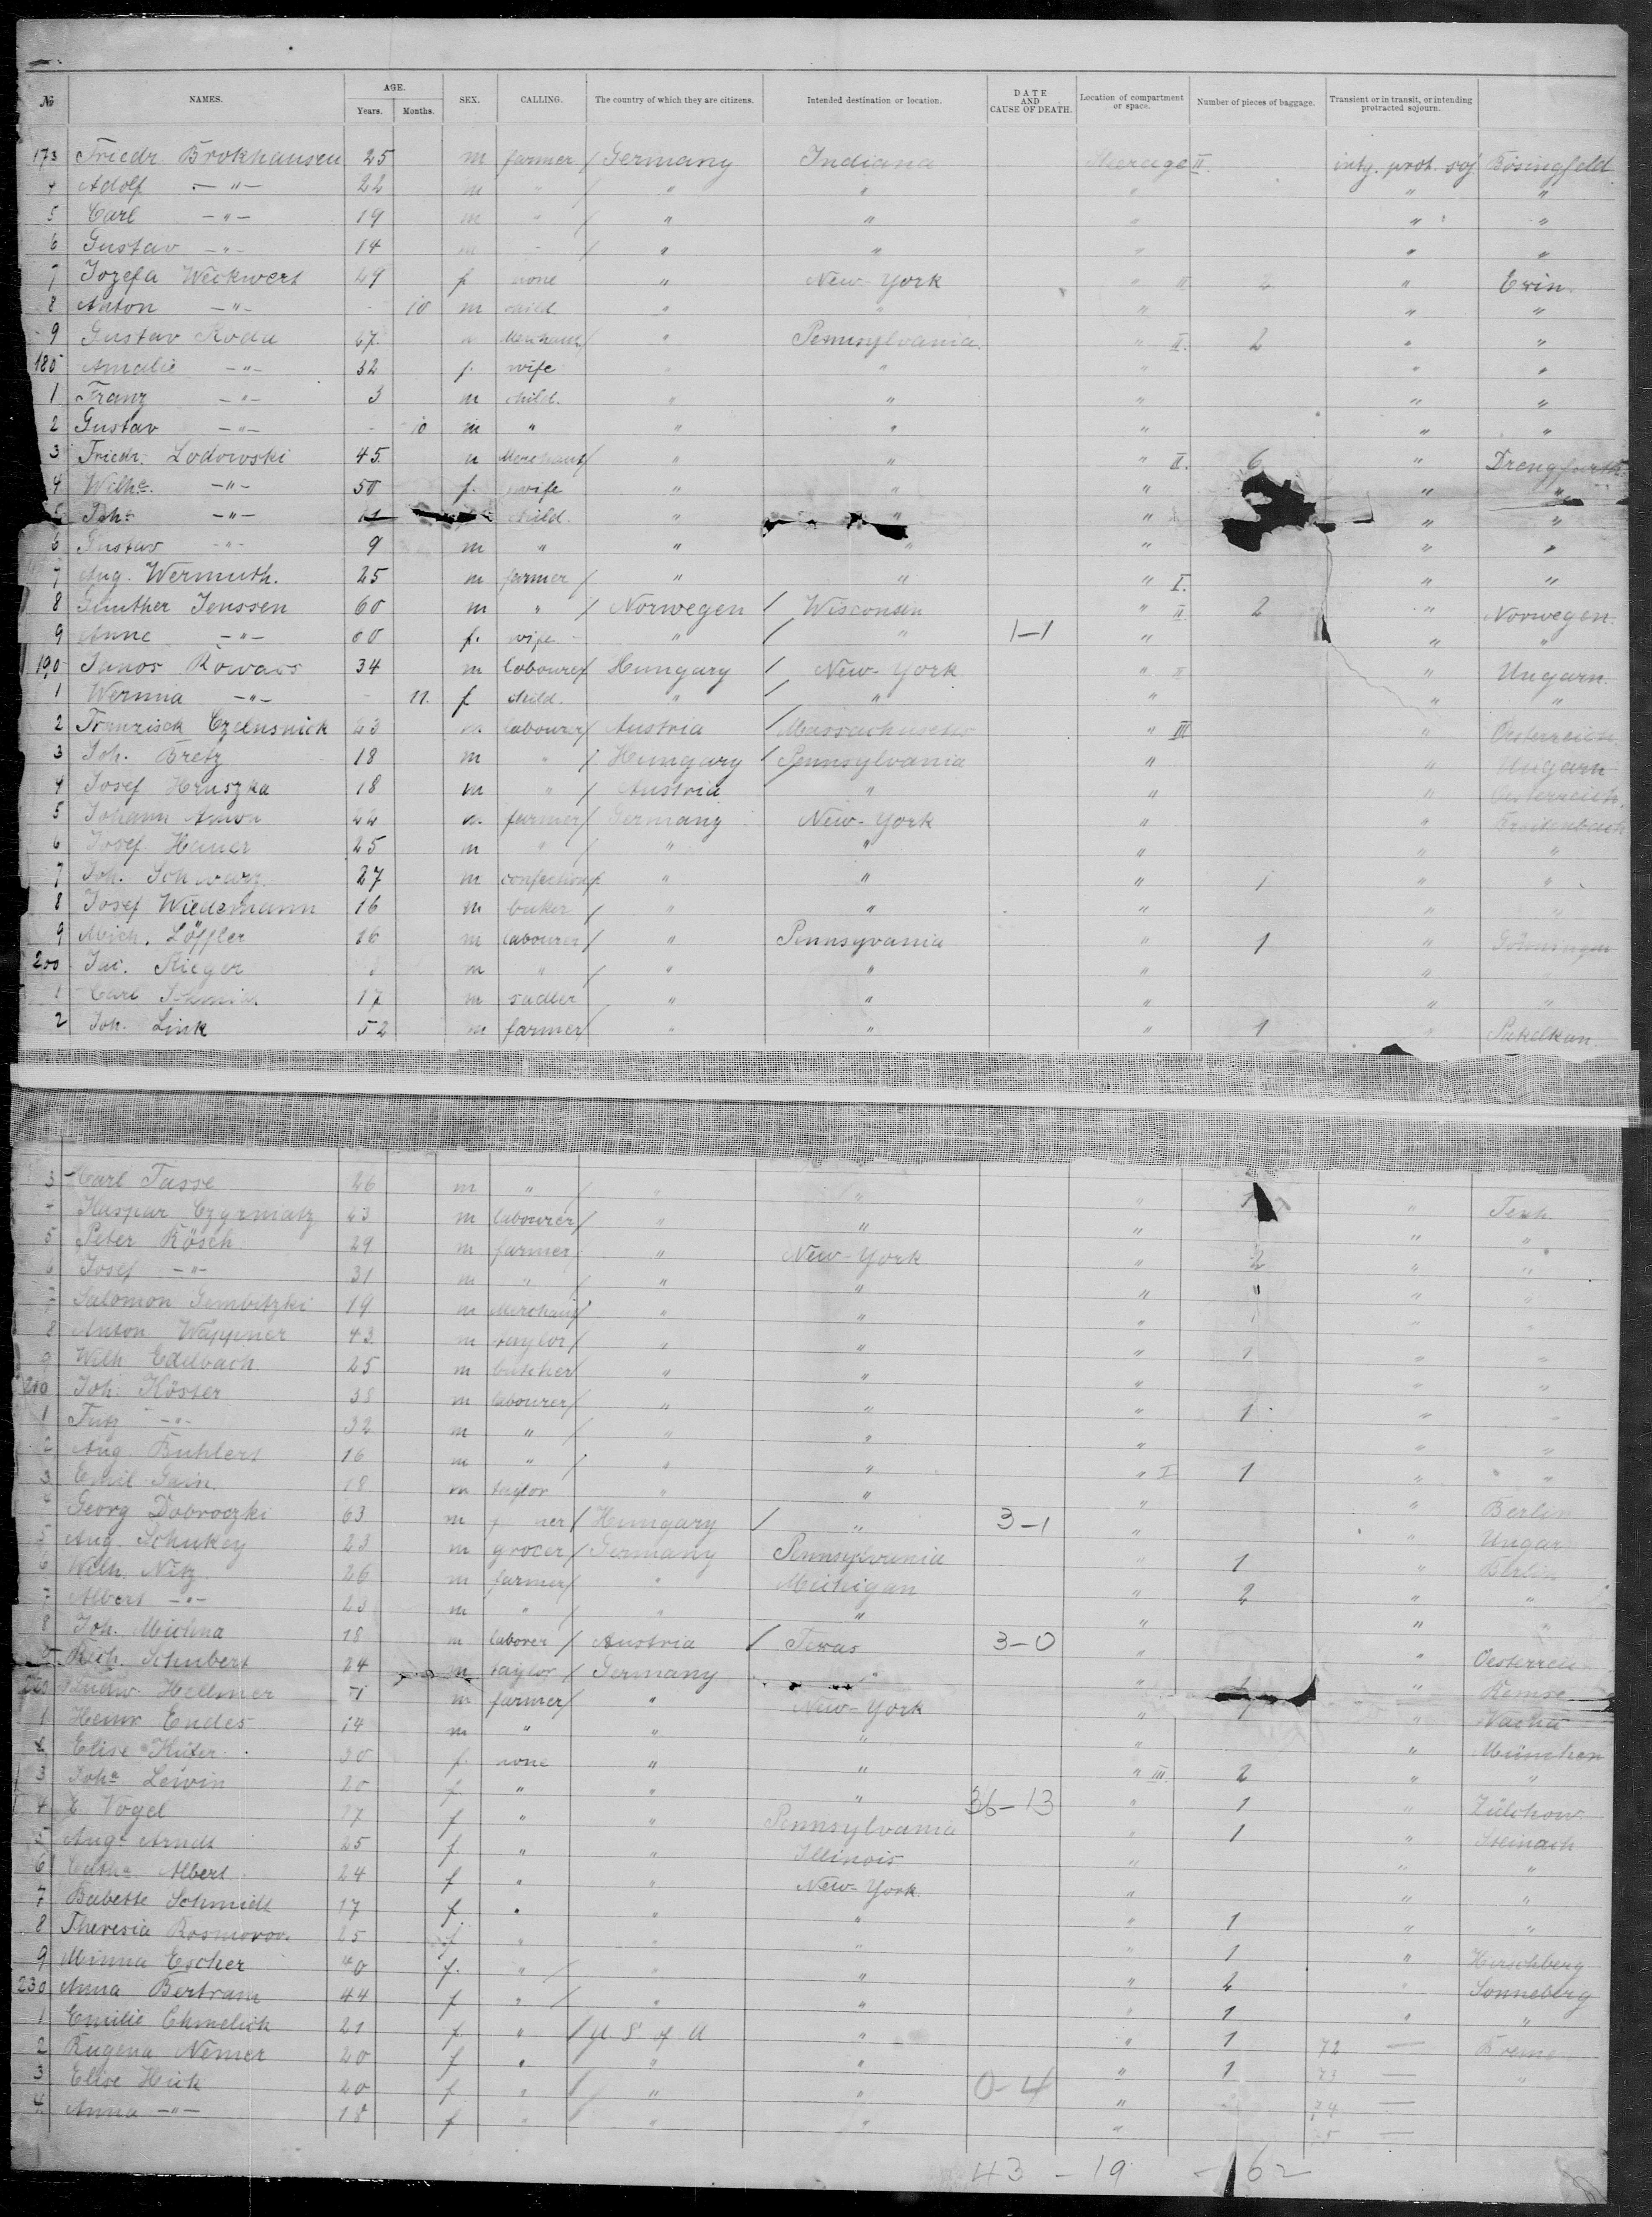 № NAMES. AGE. Years. Months. SEX. CALLING. The country of which they are citizens. Intended destination or location. DATE AND CAUSE OF DEATH. Location of compartment or space. Number of pieces of baggage. Transient or in transit, or intending protracted sojourn.
173 Friedr. Brokhausen 25 m farmer / Germany Indiana Steerage II intg. prot. soj Bösingfeld
4 Adolf -"- 22 m " / " " " " "
5 Carl -"- 19 m " / " " " " "
6 Gustav -"- 14 m - / " " " " "
7 Jozefa Weckwert 29 f none " New-York " II 2 " Exin
8 Anton -"- - 10 m child " " " " "
9 Gustav Koda Merchant / " Pennsylvania. " II. 2 " "
180 Amalie -"- 32 f. wife " " " " "
1 Franz -"- 3 m child. " " " " "
2 Gustav -"- - 10 m " " " " " "
3 Friedr. Lodowski 45 m Merchant / " " " II. 6 " Drengfurth
4 Wilhe. -"- 50 f. wife " " " " "
Johe -"- child. " " " " "
6 Gustav -"- 9 m " " " " " "
7 Aug. Wermuth. 25 m farmer / " " " I. " "
8 Günther Jenssen 60 m " / Norwegen / Wisconsin " II 2 " Norwegen.
9 Anne -"- 60 f. wife " / " 1-1 " " "
190 Janos Kowacs 34 m labourer / Hungary / New-York " II " Ungarn.
1 Wermia -"- - 11. f child. " / " " " "
2 Franzisek Czelusnick 23 m labourer / Austria / Massachusetts " III " Oesterreich
3 Joh. Bretz 18 m " / Hungary / Pennsylvania " " Ungarn
4 Josef Hruszka 18 m " / Austria " " " Oesterreich.
5 Johann Amon 22 m farmer / Germany New-York " " Breitenbach
6 Josef Hauer 25 m " / " " " " "
7 Joh. Schwarz 27 m confection / " " " 1 " "
8 Josef Wiedemann 16 m baker / " " " " "
9 Mich. Löffler 16 m labourer / " Pennsyvania " 1 "
200 Rieger m " / " " " " "
1 Carl Schmidt 17 m sadler " " " " "
2 Joh. Link 52 m farmer / " " " 1 "
3 Carl Tasse 26 m " / " " " "
Kaspar Czyrniatz 23 m labourer / " " " " "
5 Peter Rösch 29 m farmer " New-York " 2 "
6 Josef -"- 31 m " / " " " " "
7 Salomon Gembitzki 19 m Merchant " " " " "
8 Anton Wäppner 43 m taylor / " " " 1 " "
9 Wilh. Edelbach 25 m butcher / " " " " "
210 Joh. Höster 38 m labourer / " " " 1 " "
1 Fritz -"- 32 m " / " " " " "
2 Aug. Buhlert 16 m " / " " " I 1 " "
3 Emil Gain 18 m taylor " " " " Berlin
4 Georg Dobroczki 63 m / Hungary / " 3-1 " " Ungar
5 Aug. Schukey 23 m grocer / Germany Pennsylvania " 1 " Berlin
6 Wilh. Nitz 26 m farmer / " Michigan " 2 " "
7 Albert -"- 23 m " / " " " " "
8 Joh. Michna 18 m laborer / Austria / Texas 3-0 " " Oesterreic
9 Rich. Schubert 24 m taylor / Germany " " " Remse
220 Ludw. Hellmer m farmer / " New-York " 1 " Vacha
1 Heinr Endes 14 m " " " " " München
Elise Küfer 30 f. none " " " III 2 " "
3 Johe Lewin 20 f. " " " 36-13 " 1 " Züllchow
4 E. Vogel f " " Pennsylvania " 1 " Steinach
5 Auge Arndt 25 f. " " Illinois " " "
6 Albert 24 f " " New-York. " " "
7 Babette Schmidt 17 f. " " " " 1 " "
8 Theresia 25 f " " " " 1 " Hirschberg
9 Minna Escher f. " / " " " 2 " Sonneberg
230 Anna Bertram 44 f " / " " " 1 " "
1 Emilie Chmelick 21 f. " / U S of A " " 1 72 —
2 Rugena Nemer 20 f " " " " 1 73 — "
3 Elise Hick 20 f. " / " " 0-4 " 74 —
4 Anna -"- 18 f " " " " —
43 - 19 - 62